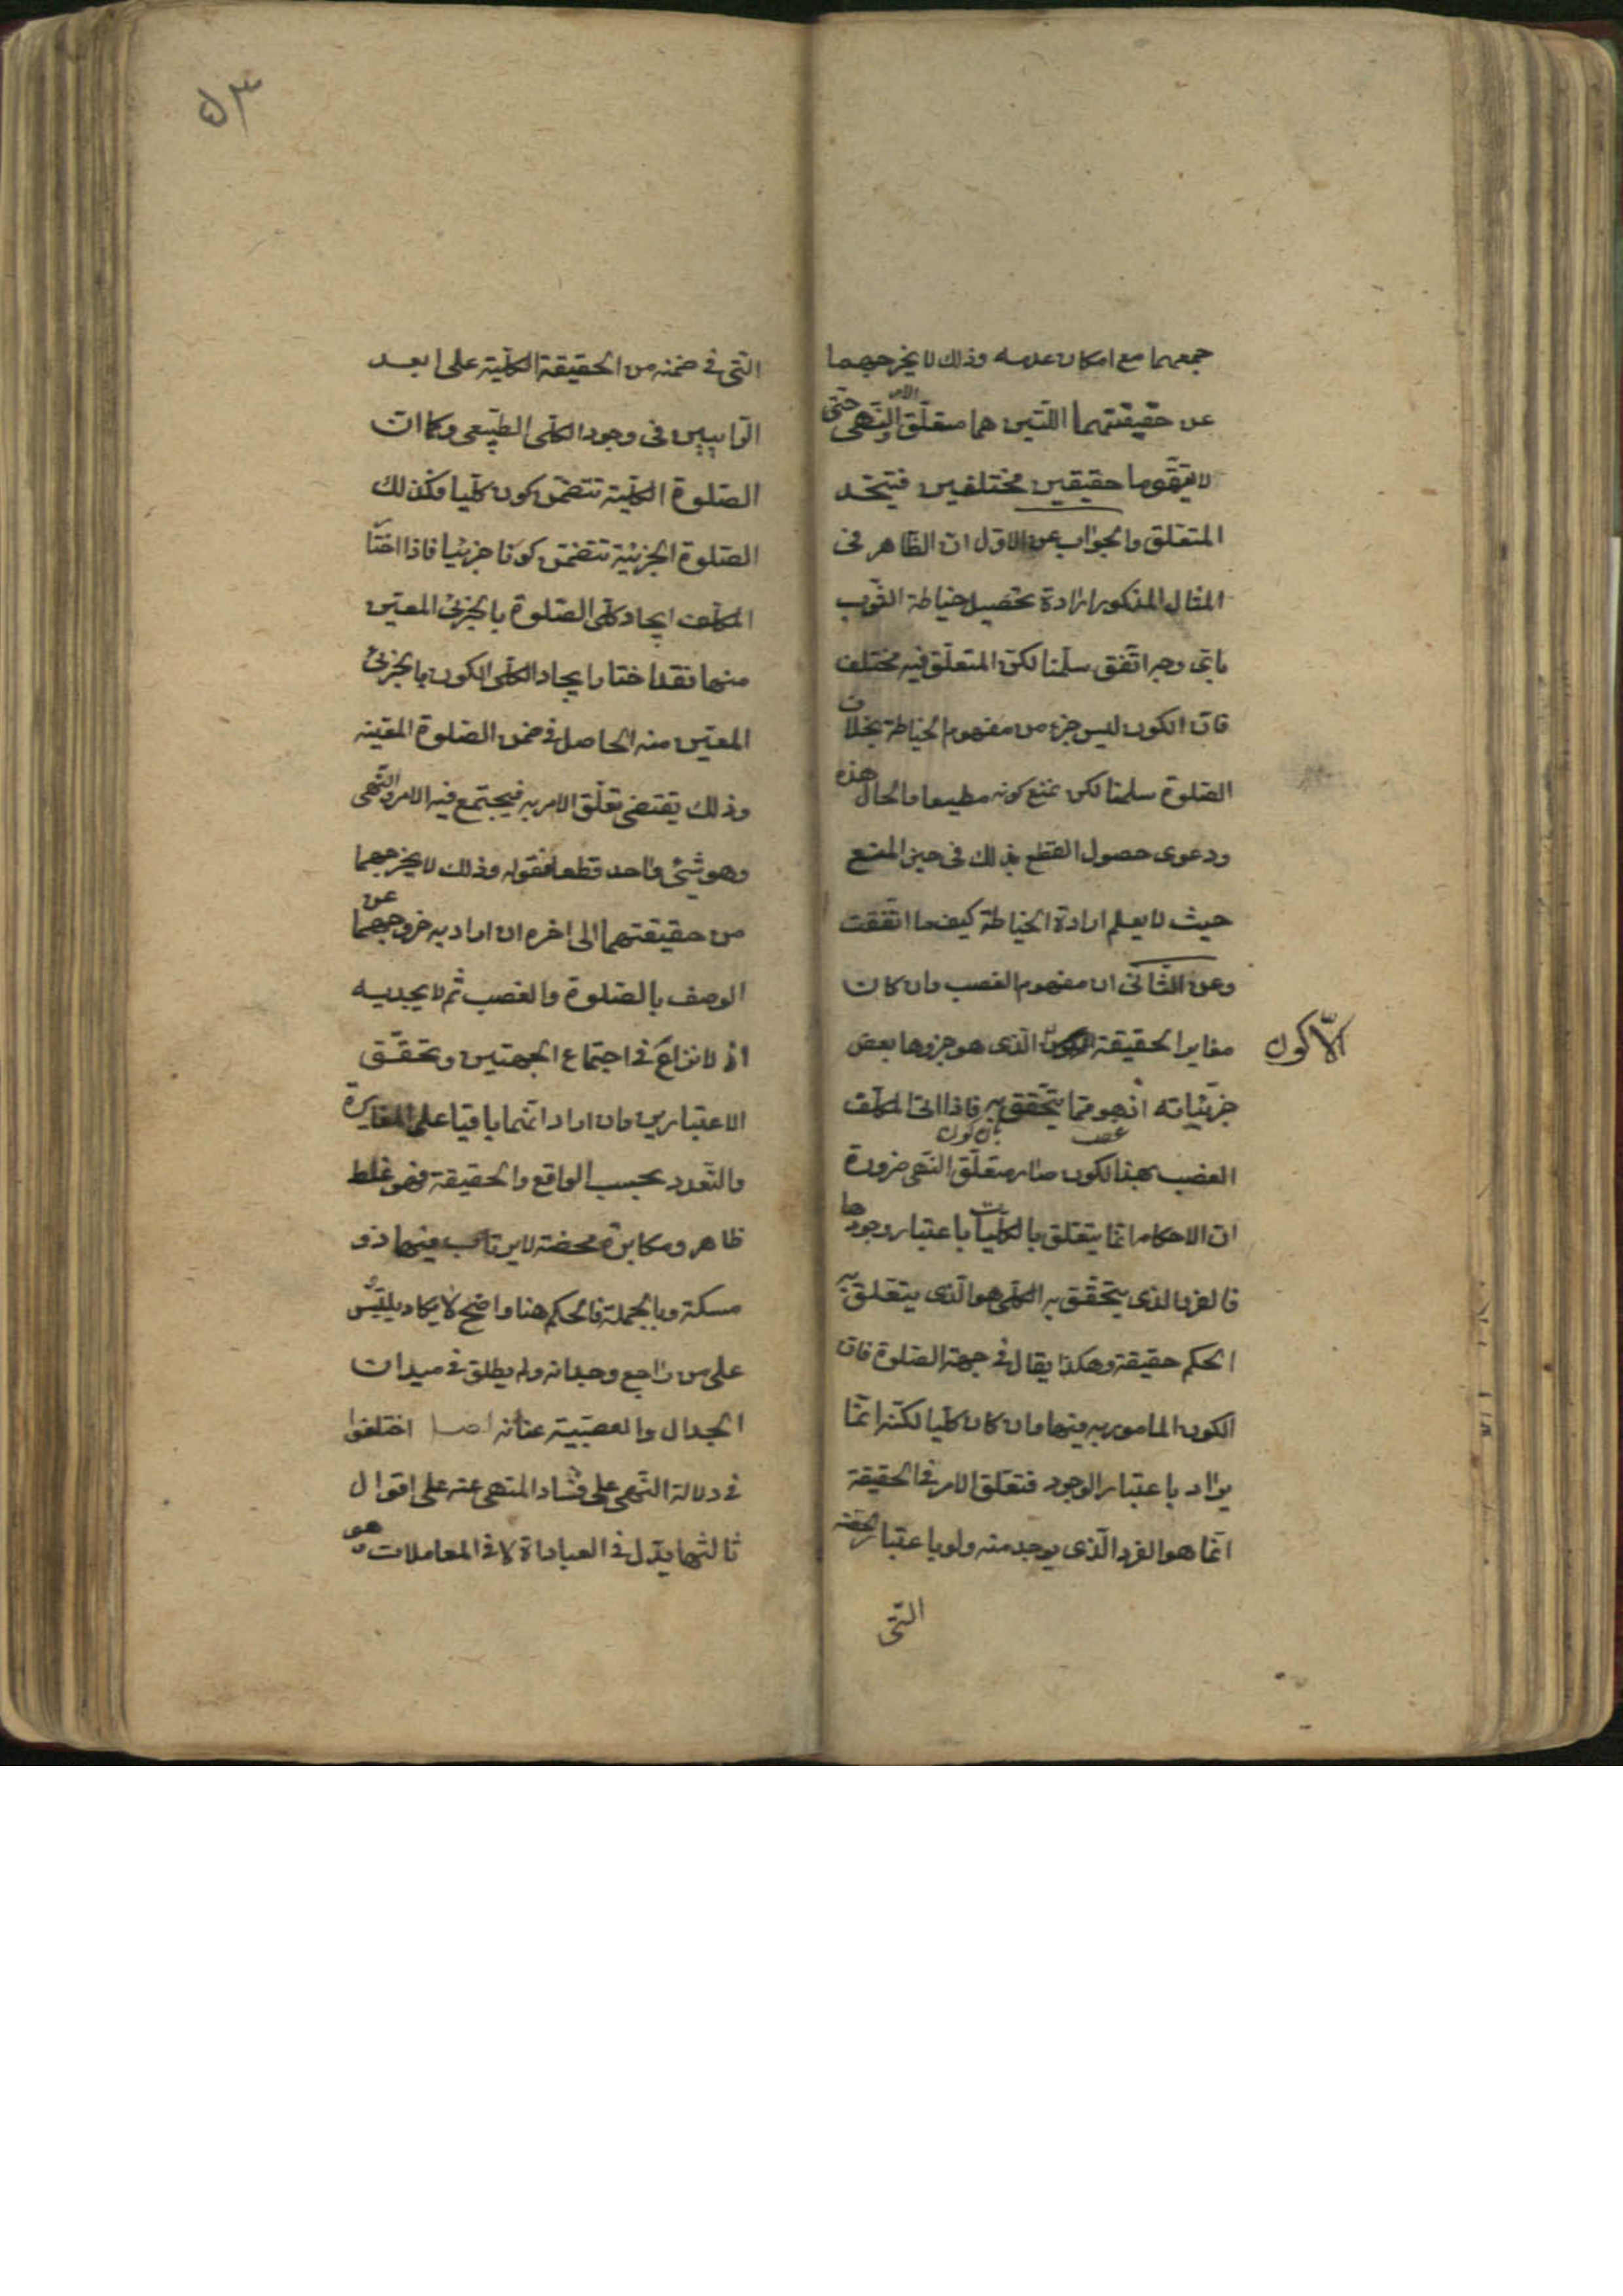 جمعهما مع امكان عدمه وذلك لا يخرجهما
عن حقيقتهما اللتين هما متعلّق الامر والنّهى حتى
لا يتقوما حقيقين مختلفين فيتّحد
المتعلّق والجواب عن الاوّل ان الظاهر فى
المثال المذكور ارادة تحصيل خياطة الثّوب
باىّ وجه اتّفق سلّمنا لكن المتعلّق فيه مختلف
فان الكون ليس جزء من مفهوم الخياطة بخلاف
الصّلوة سلمنا لكن نمنع كونه مطيعا والحال هذه
ودعوى حصول القطع بذلك فى حيز المنع
حيث لا يعلم ارادة الخياطة كيف ما اتّفقت
وعن الثّانى ان مفهوم الغصب وان كان
مغايرا لحقيقة الّذى هو جزوها بعض
الّا كون
جزئياته اذ هو ممّا يتحّقق به فاذا المكلّف
الغصب بهذا الكون صار متعلّق النّهى ضرورة
ان الاحكام انّما يتعّلق بالكليات باعتبار وجودها
فالفرد الذى يتحّقق به الكلّى هو الّذى يتعّلق به
الحكم حقيقة وهكذا يقال فى جهة الصّلوة فان
الكون المامور به فيها وان كان كلّيا لكنّه انّما
يراد باعتبار الوجود فمتعّلق الامر فى الحقيقة
انّما هو الفرد الّذى يوجد منه ولو باعتبار الحصّة
الّتى
۵۳
الّتى فى ضمنه من الحقيقة الكلّية على ابعد
الرّايين فى وجود الكلّى الطّبيعى وكما ان
الصّلوة الكلّية تتضمّن كون كلّيا فكذلك
الصّلوة الجزئيّة تتضمّن كونا جزئيا فاذا اختار
المكلّف ايجاد كلّى الصّلوة بالجزئى المعيّن
منها فقد اختار ايجاد الكلّى الكون بالجزئى
المعيّن منه الحاصل فى ضمن الصّلوة المعّينه
وذلك يقتضى تعلّق الامر به فيجتمع فيه الامر والنّهى
وهو شيئ واحد قطعا فقوله وذلك لا يخرجهما
من حقيقتهما الى اخره ان اراد به خروجهما عن
الوصف بالصّلوة والغصب ثم لا يجديه
اذ لا نزاع فى اجتماع الجهتين وتحقّق
الاعتبارين وان اراد انّهما باقيا على المغايرة
والتّعدد بحسب الواقع والحقيقة فهو غلط
ظاهر ومكابرة محضة لا يرتاب فيها ذو
مسكة وبالجملة فالحكم هنا واضح لا يكاد يلتبس
على من راجع وجدانه ولم يطلق فى ميدان
الجدال والعصّبية عنانه اصل اختلفوا
فى دلالة النّهى على فساد المنهى عنه على اقوال
ثالثها يدّل فى العباداة لا فى المعاملات وهو